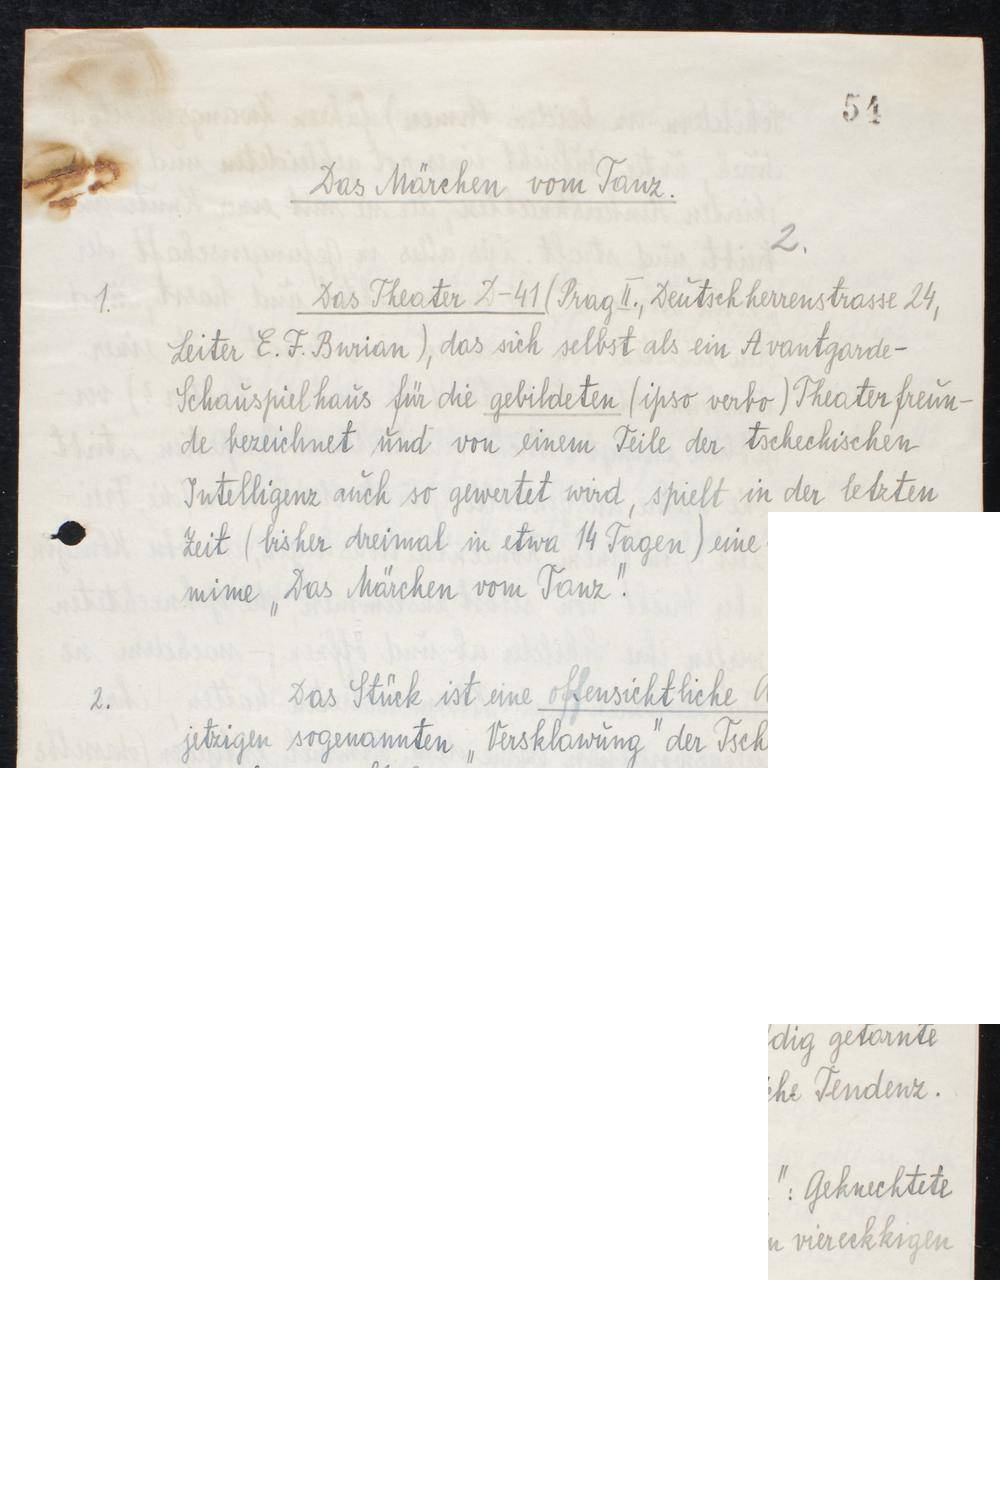 54
Das Märchen vom Tanz.
2.
1. Das Theater D-41 (Prag II., Deutschherrenstrasse 24,
Leiter E. F. Burian), das sich selbst als ein Avantgarde-
Schauspielhaus für die gebildeten (ipso verbo) Theaterfreun-
de bezeichnet und von einem Teile der tschechischen
Intelligenz auch so gewertet wird, spielt in der letzten
Zeit (bisher dreimal in etwa 14 Tagen) eine
mime „Das Märchen vom Tanz".
2. Das Stück ist eine offensichtliche
jetzigen sogenannten „Versklawung" der Tsch
dig getarnte
che Tendenz.
": Geknechtete
viereckkigen